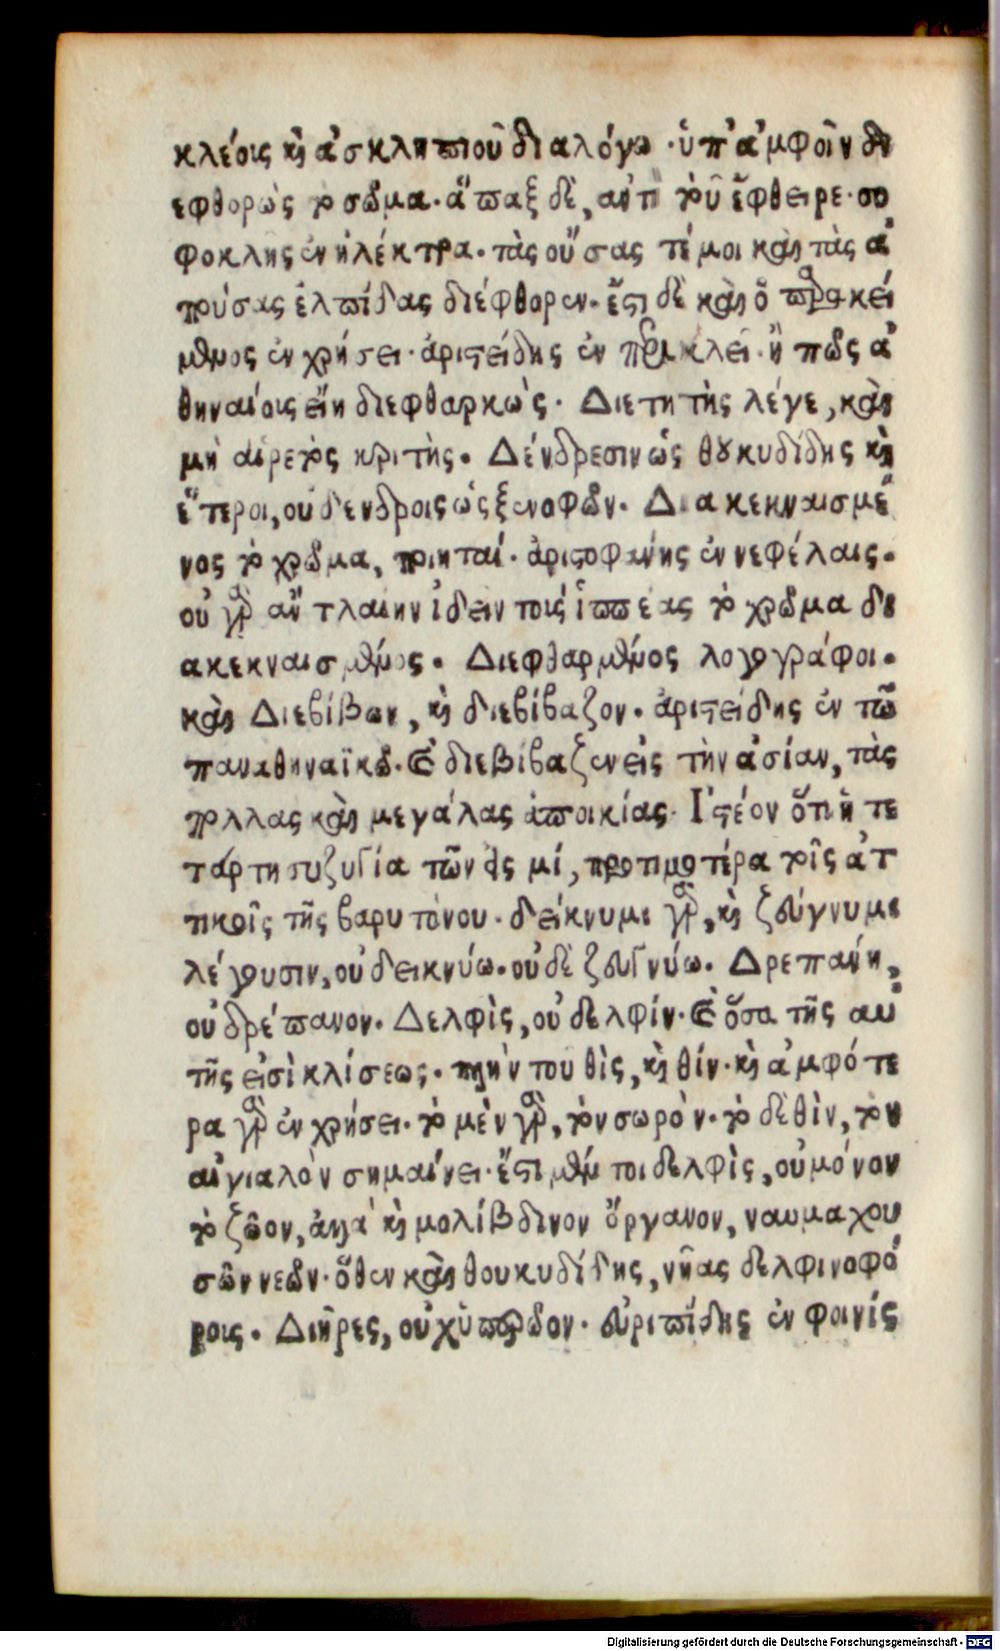 κλέοις κὴ ἀσκληπιοῦ διαλόγω · ὑπ' ἀμφοῖν δι
εφθορὼς τὸ σῶμα. ἅπαξ δὲ, αὐτὶ τοῦ ἔφθειρε · σο
φοκλῆς ἐν ἠλέκτρα. τὰς οὔσας τέ μοι καὶ τὰς ἀ
πούσας ἐλπίδας διέφθορεν. ἔστι δὲ καὶ ὁ παρακεί
μενος ἐν χρήσει · ἀριστείδης ἐν περικλεῖ · ἢ πῶς ἀ
θηναίοις εἴη διεφθαρκὼς. Διετητὴς λέγε, καὶ
μὴ αἱρετὸς κριτὴς. Δένδρεσιν ὡς θουκυδίδης καὶ
ἕτεροι, οὐ δενδροις ὡς ξενοφῶν. Διακεκναισμέ
νος τὸ χρῶμα, ποιηταί · ἀριστοφάνης ἐν νεφέλαις.
οὐ γὰρ ἂν τλαίην ἰδεῖν τοὺς ἱππέας τὸ χρῶμα δι
ακεκναισμένος. Διεφθαρμένος λογογράφοι.
καὶ Διεβίβων, καὶ διεβίβαζον. ἀριστείδης ἐν τῶ
παναθηναϊκῶ. Καὶ διεβίβαζεν εἰς τὴν ἀσίαν, τὰς
πολλας καὶ μεγάλας ἀποικίας. Ἰστέον ὅτι ἡ τε
τάρτη συζυγία τῶν εἰς μί, προτιμοτέρα τοῖς ἀτ
τικοῖς τῆς βαρυτόνου. δείκνυμι γὰρ, καὶ ζεύγνυμι
λέγουσιν, οὐ δεικνύω. οὐδὲ ζευγνύω. Δρεπάνη,
οὐ δρέπανον. Δελφὶς, οὐ δελφίν. Καὶ ὅσα τῆς αυ
τῆς εἰσὶ κλίσεως. πλὴν του θὶς, καὶ θίν. καὶ ἀμφότε
ρα γὰρ ἐν χρήσει. τὸ μὲν γὰρ, τὸν σωρὸν. τὸ δὲ θὶν, τὸν
αἰγιαλὸν σημαίνει. ἔστι μέν τοι δελφὶς, οὐ μόνον
τὸ ζῶον, ἀλλὰ καὶ μολίβδινον ὄργανον, ναυμαχου
σῶν νεῶν. ὅθεν καὶ θουκυδίδης, νῆας δελφινοφό
ροις. Διῆρες, οὐχ ὑπερῶον. εὐριπίδης ἐν φοινίς
Digitalisierung gefördert durch die Deutsche Forschungsgemeinschaft - DFG